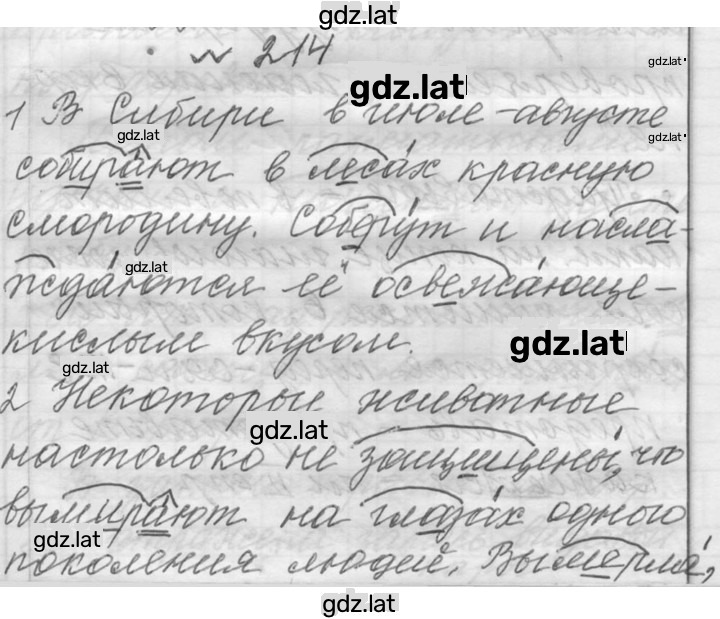 gdz.lat
№ 214
gdz.lat
gdz.lat
1 В Сибири в июле-августе
gdz.lat
gdz.lat
собирают в лесах красную
смородину. Соберут и насла-
gdz.lat
ждаются её освежающе-
кислым вкусом.
gdz.lat
gdz.lat
2 Некоторые животные
gdz.lat
настолько не защищены, что
вымирают на глазах одного
gdz.lat
поколения людей. Вымерла,
gdz.lat